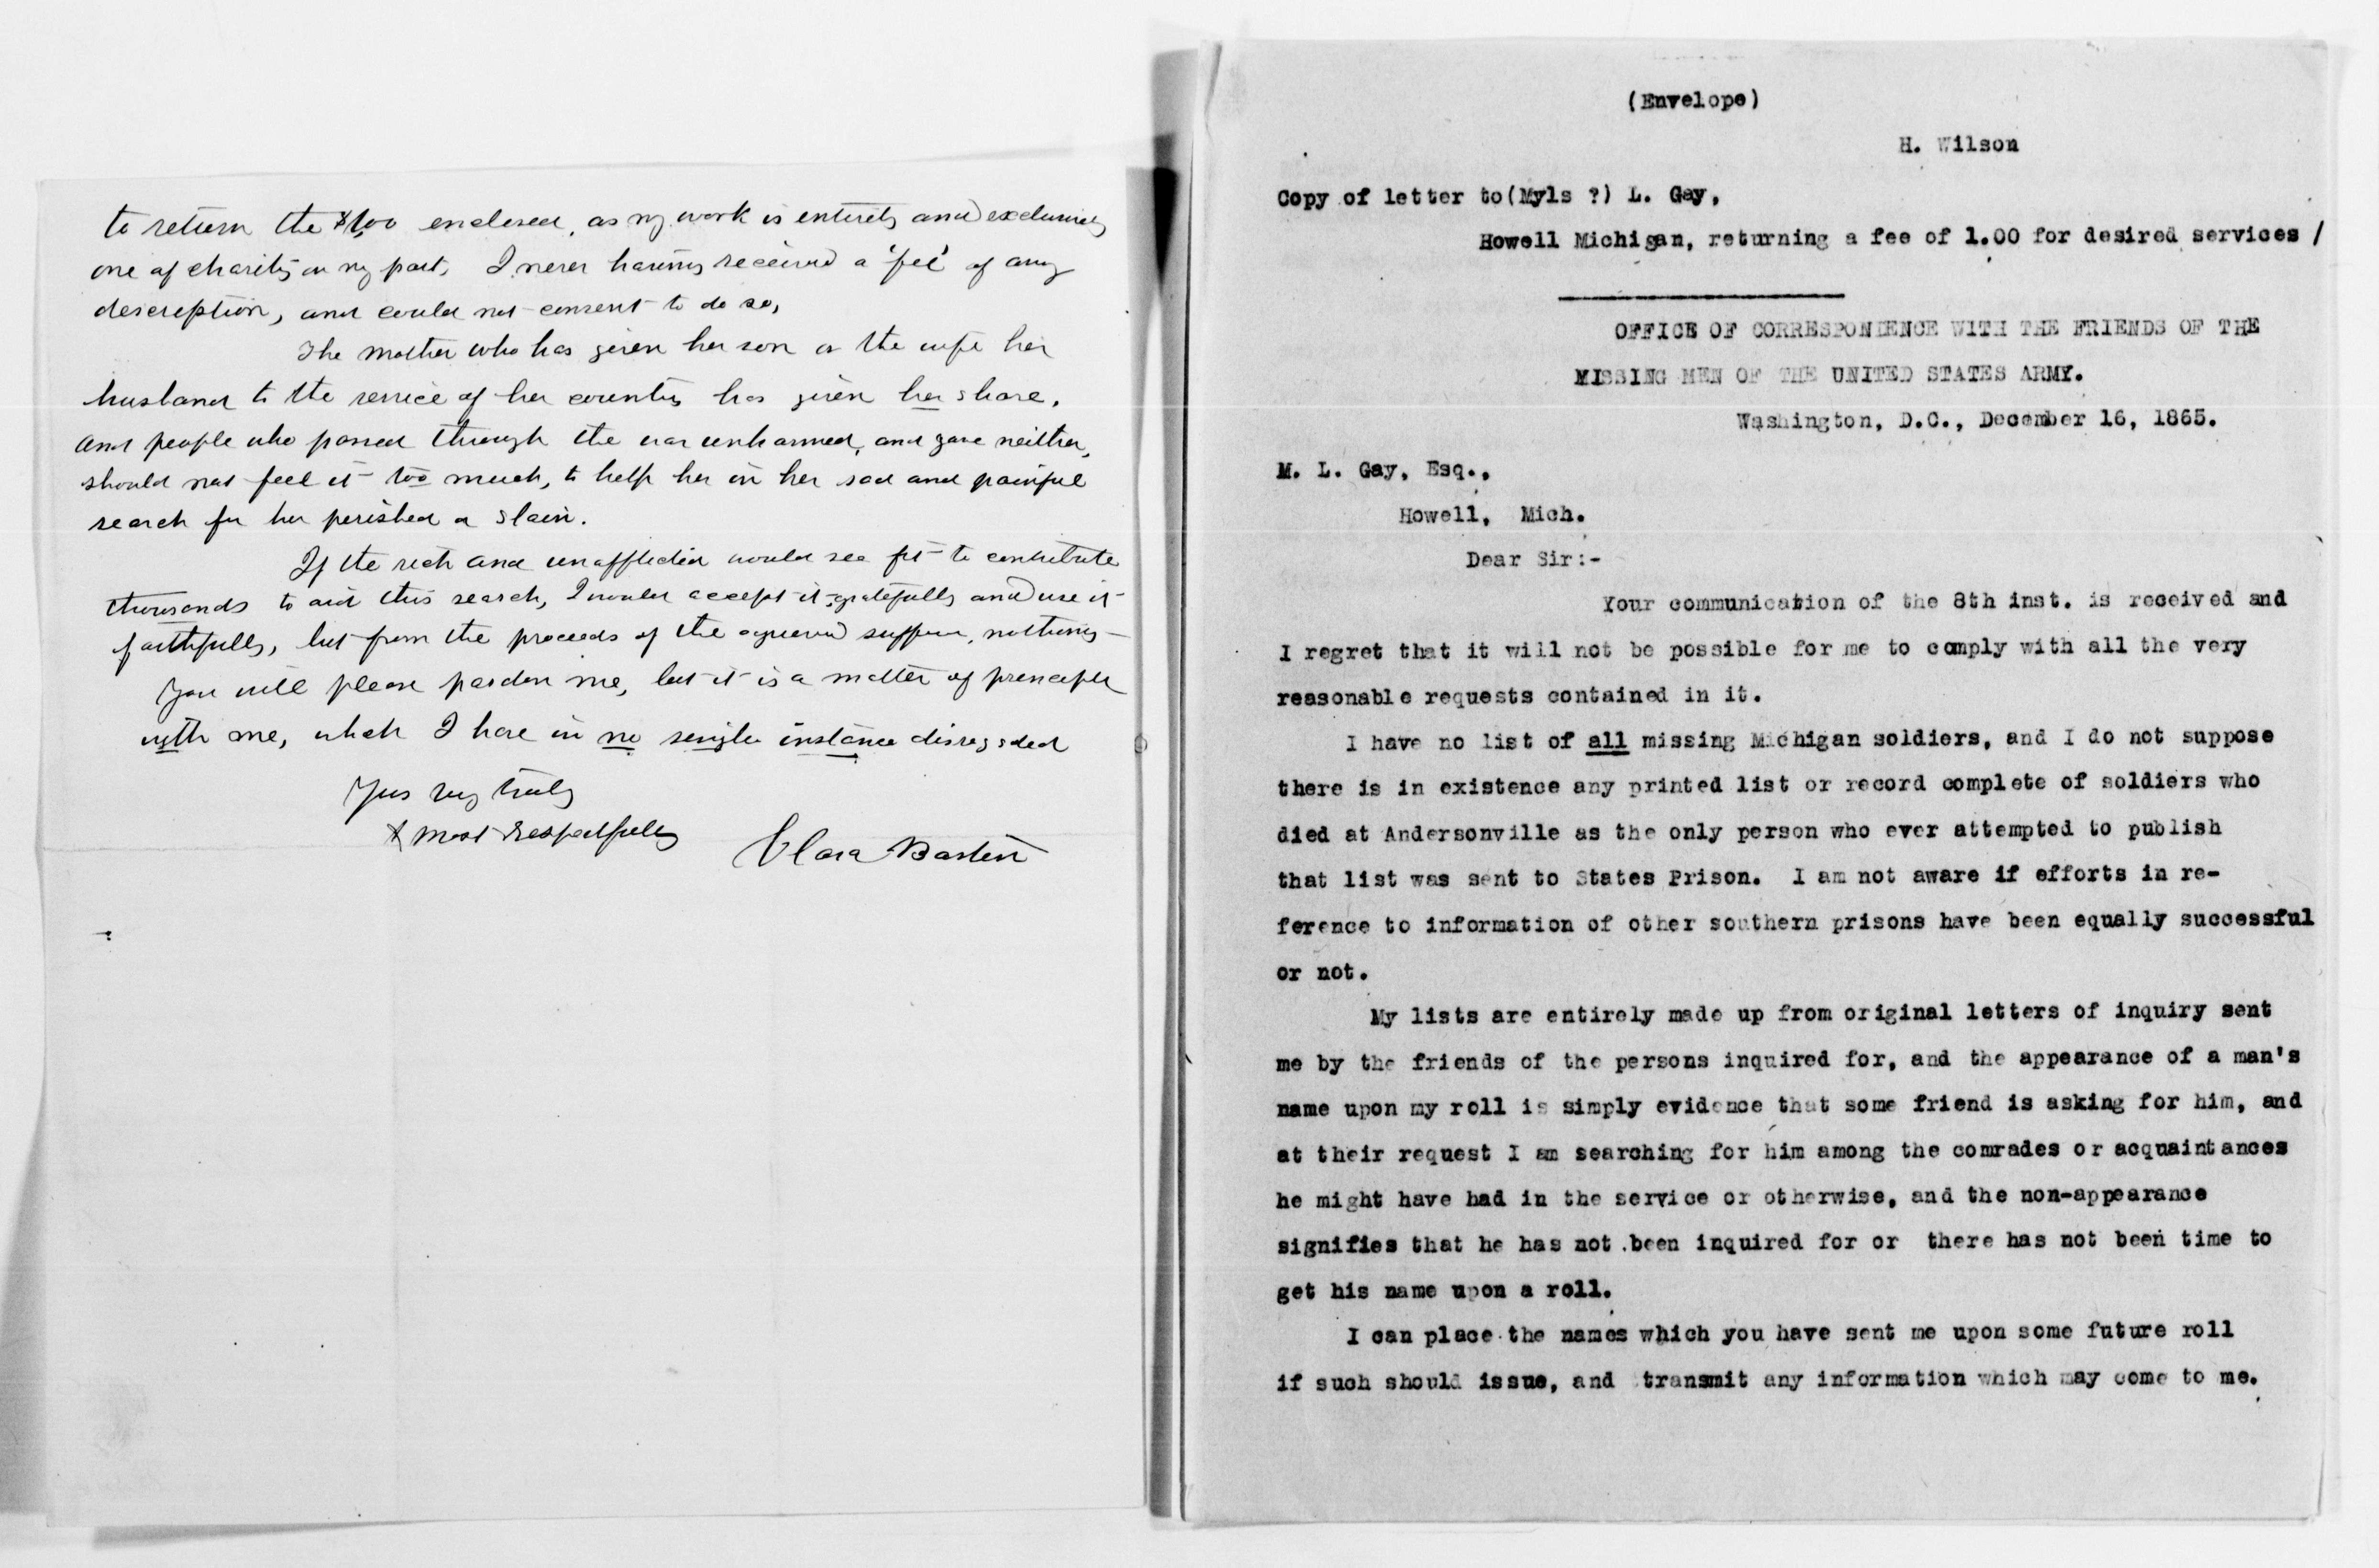 to return the $1,00 enclosed, as my work is entirely and exclusively
one of charity on my part, I never having received a 'fee' of any
description, and could not consent to do so,
The mother who has given her son or the wife her
husband to the service of her country has given her share,
and people who passed through the war unharmed, and gave neither,
should not feel it too much, to help her in her sad and painful
search for her perished or slain.
If the rich and unafflicted would see fit to contribute
thousands to aid this search, I would accept it gratefully and use it
faithfully, but from the proceeds of the aggrieved sufferer, nothing
You will please pardon me, but it is a matter of principle
with me, which I have in no single instance disregarded
Yours very truly
& most respectfully
Clara Barton
(Envelope)
H. Wilson
Copy of letter to(Myls ?) L. Gay,
Howell Michigan, returning a fee of 1.00 for desired services /
OFFICE OF CORRESPONDENCE WITH THE FRIENDS OF THE
MISSING MEN OF THE UNITED STATES ARMY.
Washington, D.C., December 16, 1865.
M. L. Gay, Esq.,
Howell, Mich.
Dear Sir:-
Your communication of the 8th inst. is received and
I regret that it will not be possible for me to comply with all the very
reasonable requests contained in it.
I have no list of all missing Michigan soldiers, and I do not suppose
there is in existence any printed list or record complete of soldiers who
died at Andersonville as the only person who ever attempted to publish
that list was sent to States Prison. I am not aware if efforts in re-
ference to information of other southern prisons have been equally successful
or not.
My lists are entirely made up from original letters of inquiry sent
me by the friends of the persons inquired for, and the appearance of a man's
name upon my roll is simply evidence that some friend is asking for him, and
at their request I am searching for him among the comrades or acquaintances
he might have had in the service or otherwise, and the non-appearance
signifies that he has not been inquired for or there has not been time to
get his name upon a roll.
I can place the names which you have sent me upon some future roll
if such should issue, and transmit any information which may come to me.